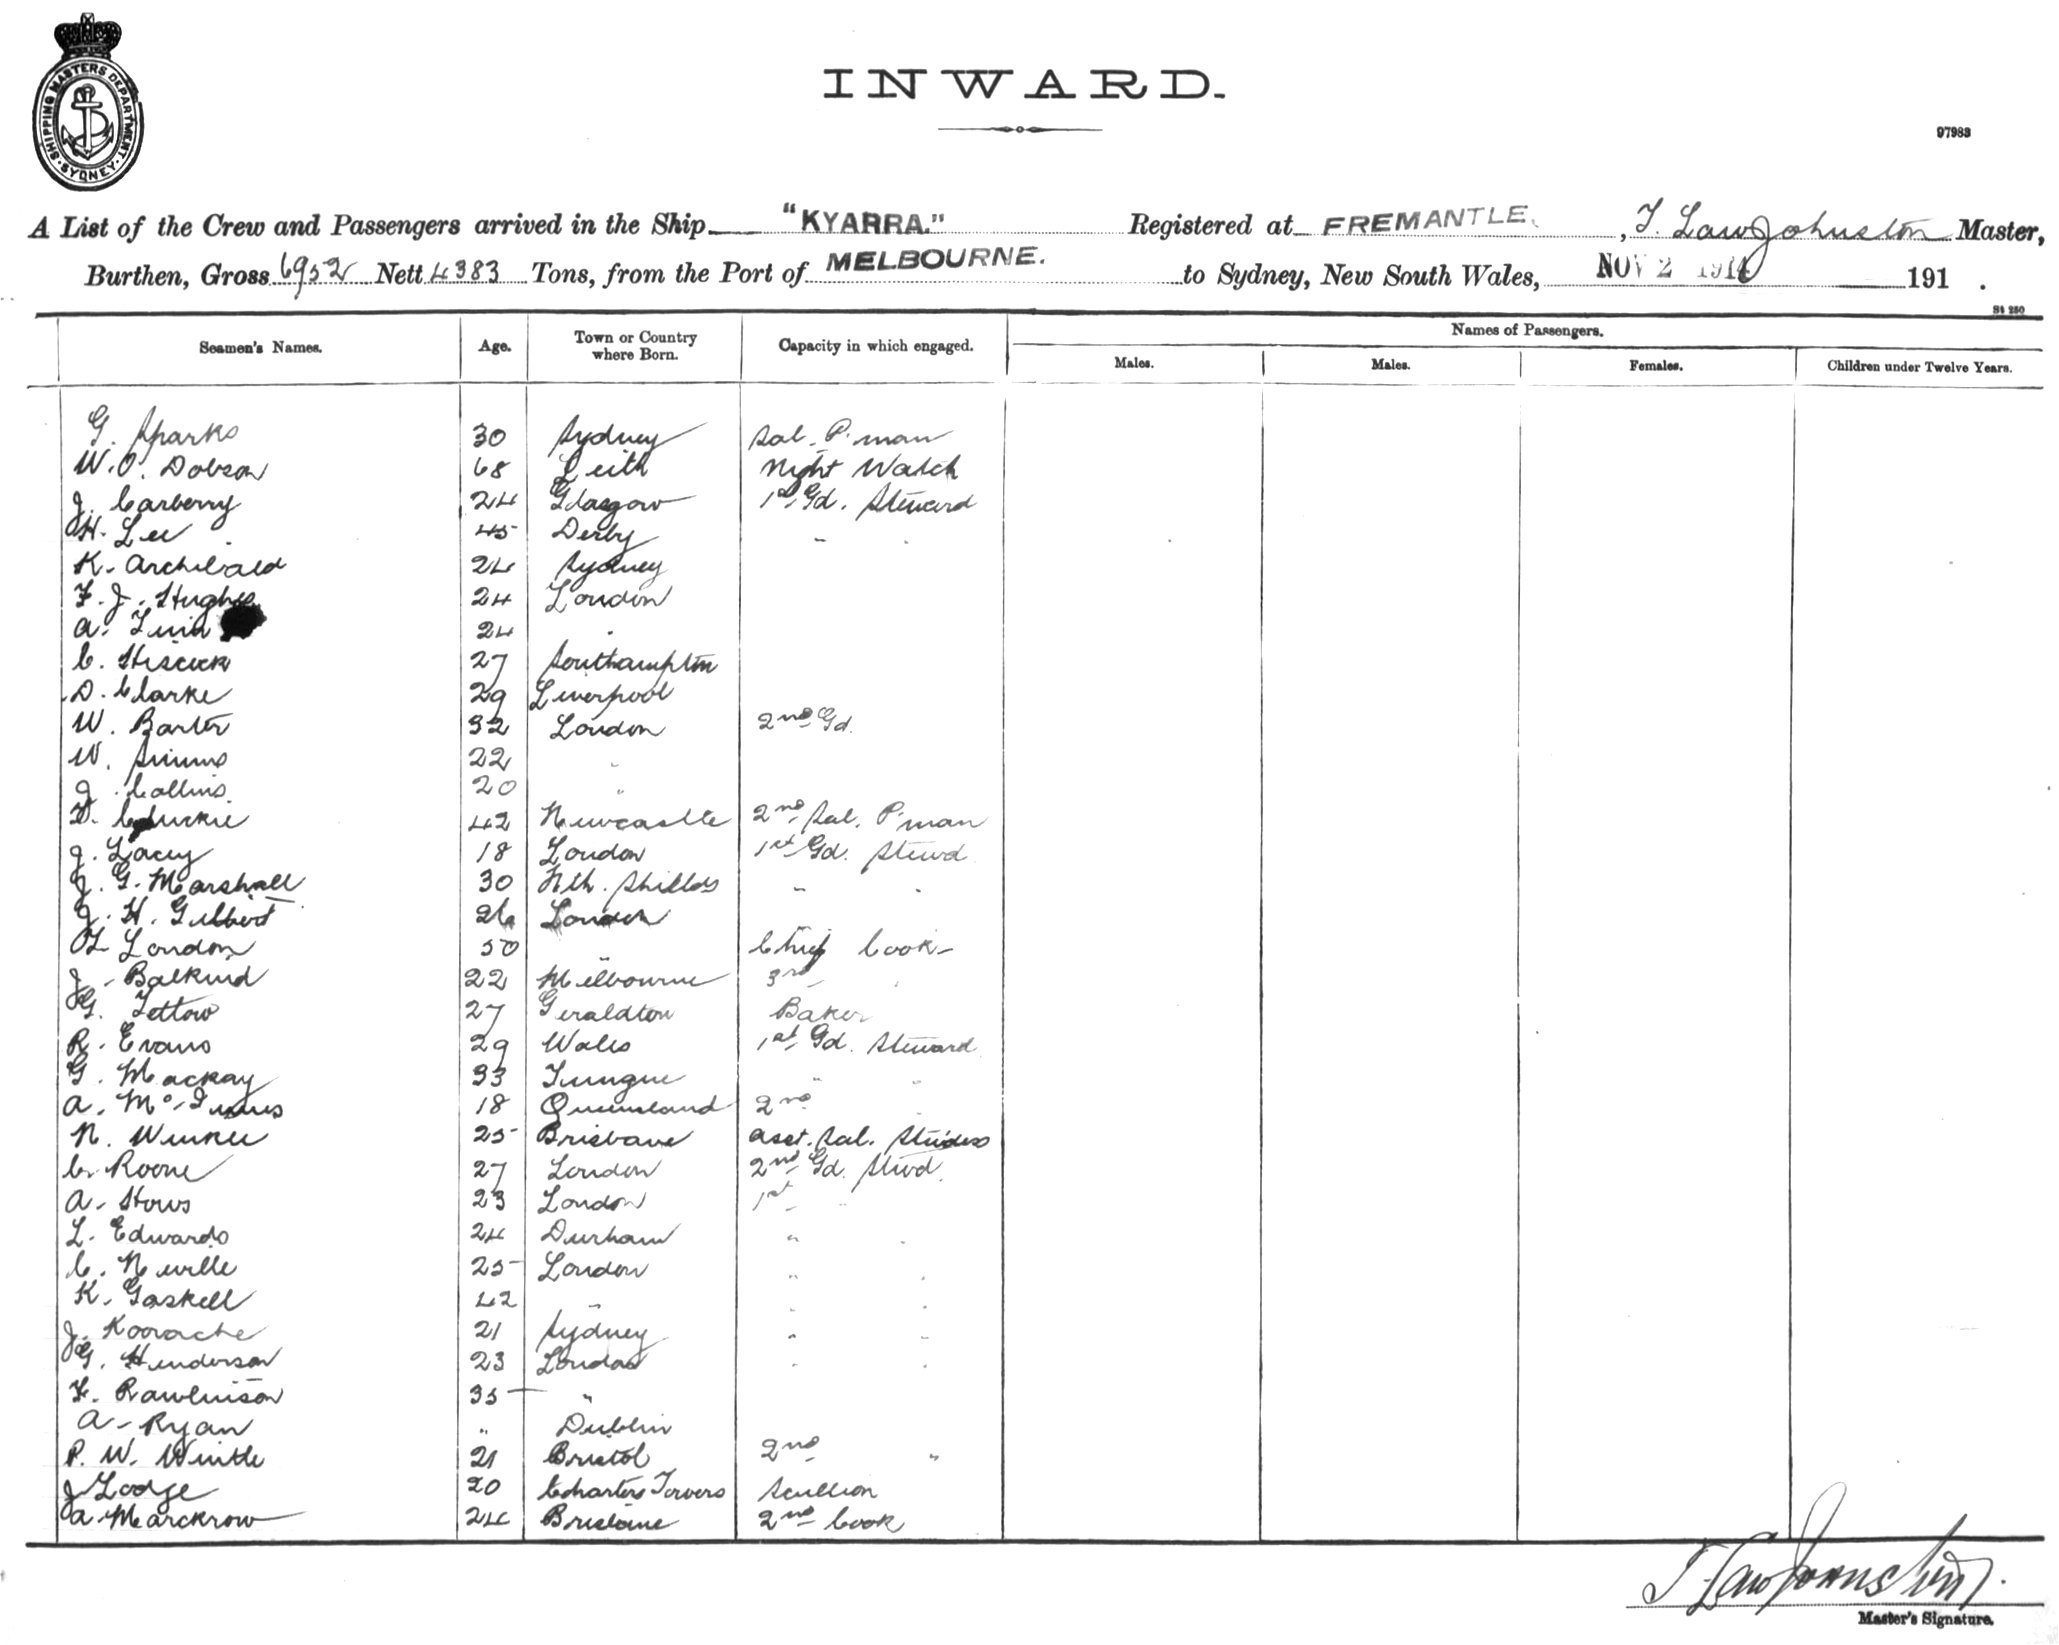 SHIPPING MASTERS DEPARTMENT. SYDNEY
INWARD.
97983
A List of the Crew and Passengers arrived in the Ship "KYARRA." Registered at FREMANTLE, T. Law Johnston Master,
Burthen, Gross 6952 Nett 4383 Tons, from the Port of MELBOURNE. to Sydney, New South Wales, NOV 2 1914 191 .
St 250
Seamen's Names. Age. Town or Country where Born. Capacity in which engaged. Names of Passengers.
Males. Males. Females. Children under Twelve Years.
G. Sparks 30 Sydney Sal. P. man
W. O. Dobson 68 Leith Night Watch
J. Carberry 24 Glasgow 1st Gd. Steward
H. Lee 45 Derby " "
K. Archibald 24 Sydney
F. J. Hughes 24 London
A. 24 "
C. Hiscock 27 Southampton
D. Clarke 29 Liverpool
W. Barter 32 London 2nd Gd.
W. Simms 22 "
J. Collins 20 "
D. 42 Newcastle 2nd Sal. P. man
J. Lacey 18 London 1st Gd. Stewd
J. G. Marshall 30 Nth. Shields " "
J. H. Gilbert 26 London
L London 50 " Chief Cook
J. Balkind 22 Melbourne 3rd "
G. Tettow 27 Geraldton Baker
R. Evans 29 Wales 1st Gd. Steward
G. Mackay 33 " "
A. McInnes 18 Queensland 2nd "
N. 25 Brisbane Asst. Sal. Stwdess
C. Roone 27 London 2nd Gd. Stwd.
A. Hows 23 London 1st "
L. Edwards 24 Durham " "
C. Neville 25 London " "
K. Gaskell 42 " " "
J. Koorache 21 Sydney " "
G. Henderson 23 London " "
F. Rawlinson 35 "
A. Ryan " Dublin
P. W. Wintle 21 Bristol 2nd "
J Lodge 20 Charters Towers Scullion
A. Marckrow 24 Brisbane 2nd Cook
T Law Johnston
Master's Signature.